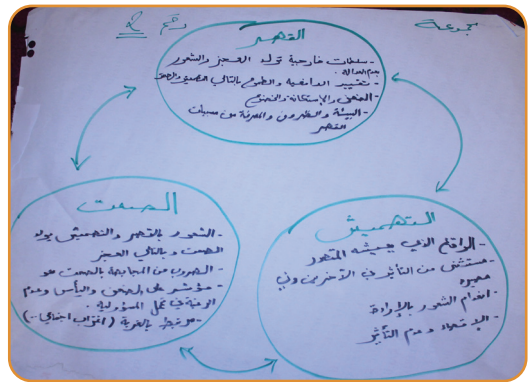 مجموعة رقم 2
القهر
- سلطات خارجية تولد العجز والشعور
بعدم العدالة.
- تغييب الدافعية والطموح بالتالي التهميش والصمت
- الضعف والإستكانة والخضوع
- البيئة والظروف والمعرفة من مسببات
القهر
الصمت
- الشعور بالقهر والتهميش يولد
الصمت وبالتالي العجز
- الهروب من المجابهة بالصمت هو
مؤشر على الضعف واليأس وعدم
الرغبة في تحمل المسؤولية.
- مرتبط بالغربة (اغتراب اجتماعي..)
التهميش
- الواقع الذي يعيشه المقهور
- مستثنى من التأثير في الآخرين وفي
محيطه
- انعدام الشعور بالإرادة
- الإقصاء وعدم التأثير